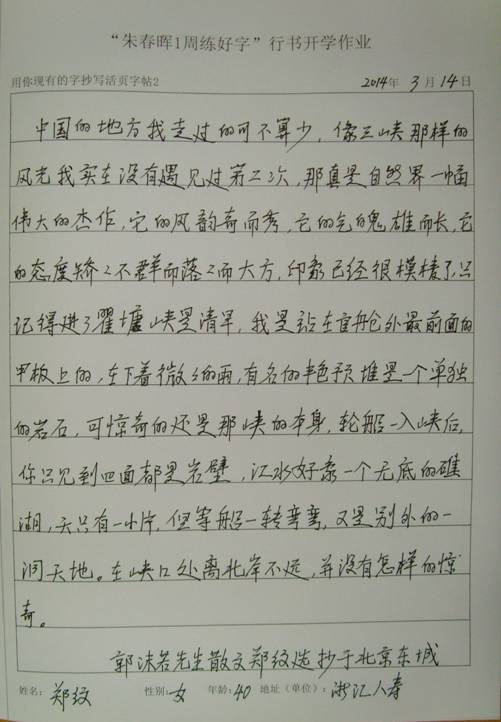 “朱春晖1周练好字”行书开学作业
用你现有的字抄写活页字帖2 2014年 3月 14日
中国的地方我走过的可不算少，像三峡那样的
风光我实在没有遇见过第二次，那真是自然界一幅
伟大的杰作，它的风韵奇而秀，它的气魄雄而长，它
的态度矫々不群而落々而大方，印象已经很模棱了，只
记得进了瞿塘峡是清早，我是站在官舱外最前面的
甲板上的，在下着微々的雨，有名的滟滪堆是一个单独
的岩石，可惊奇的还是那峡的本身，轮船一入峡后，
你只见到四面都是岩壁，江水好象一个无底的礁
湖，天只有一小片，但等船一转弯弯，又是别外的一
洞天地。在峡口处离北岸不远，并没有怎样的惊
奇。
郭沫若先生散文郑纹选抄于北京东城
姓名：郑纹 性别：女 年龄：40 地址（单位）：浙江人寿